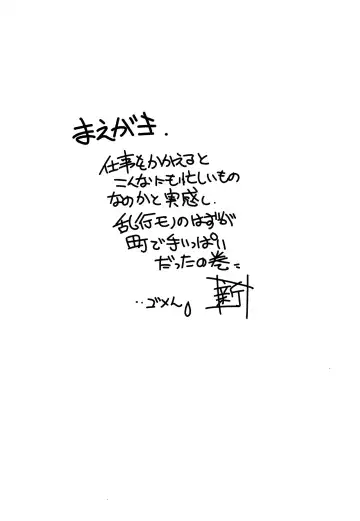 まえがき.
仕事をかかえると
こんなにも忙しいもの
なのかと実感し.
乱行モノのはずが
町で手いっぱい
だったの巻
‥ゴメん。
新